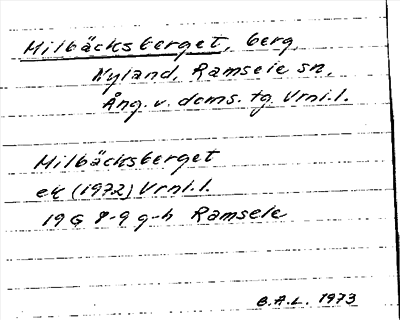 Milbäcksberget, berg,
Nyland, Ramsele sn,
Ång. v. doms. tg Vrnl.l.
Milbäcksberget
ek (1972) Vrnl.l.
19G 8-9 g-h Ramsele
B.A.L. 1973